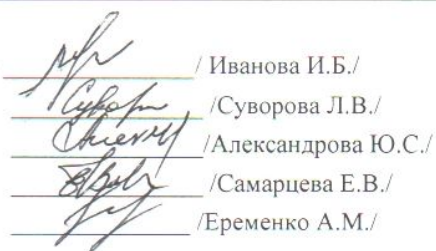 / Иванова И.Б./
/Суворова Л.В./
/Александрова Ю.С./
/Самарцева Е.В./
/Еременко А.М./